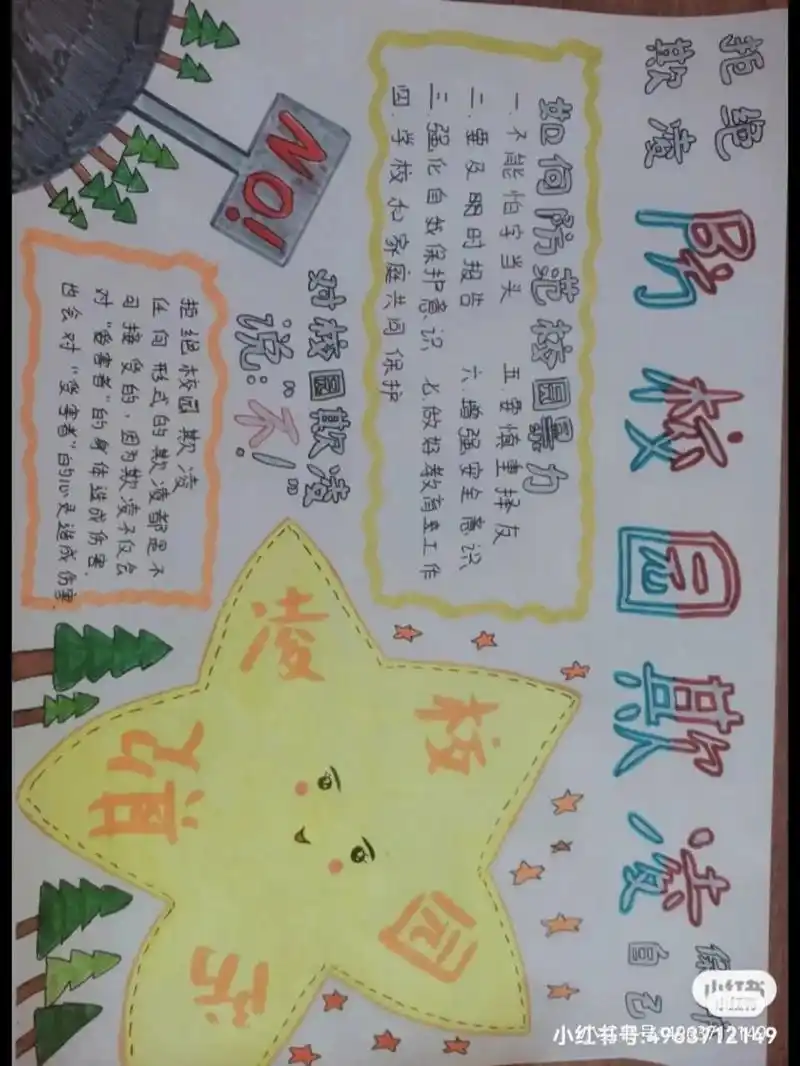 拒绝
欺凌
防校园欺凌
自己
如何防范校园暴力
一.不能怕字当头
二.要及时报告
三.强化自我保护意识
四.学校和家庭共同保护
五.要慎重择友
六.增强安全意识
七.做好教育工作
NO!
对校园欺凌
说:“不!”
拒绝校园欺凌
任何形式的欺凌都是不
可接受的,因为欺凌不仅会
对“受害者”的身体造成伤害.
也会对“受害者”的心灵造成伤害
防
校
园
欺
凌
小红书
小红书号:4963712149